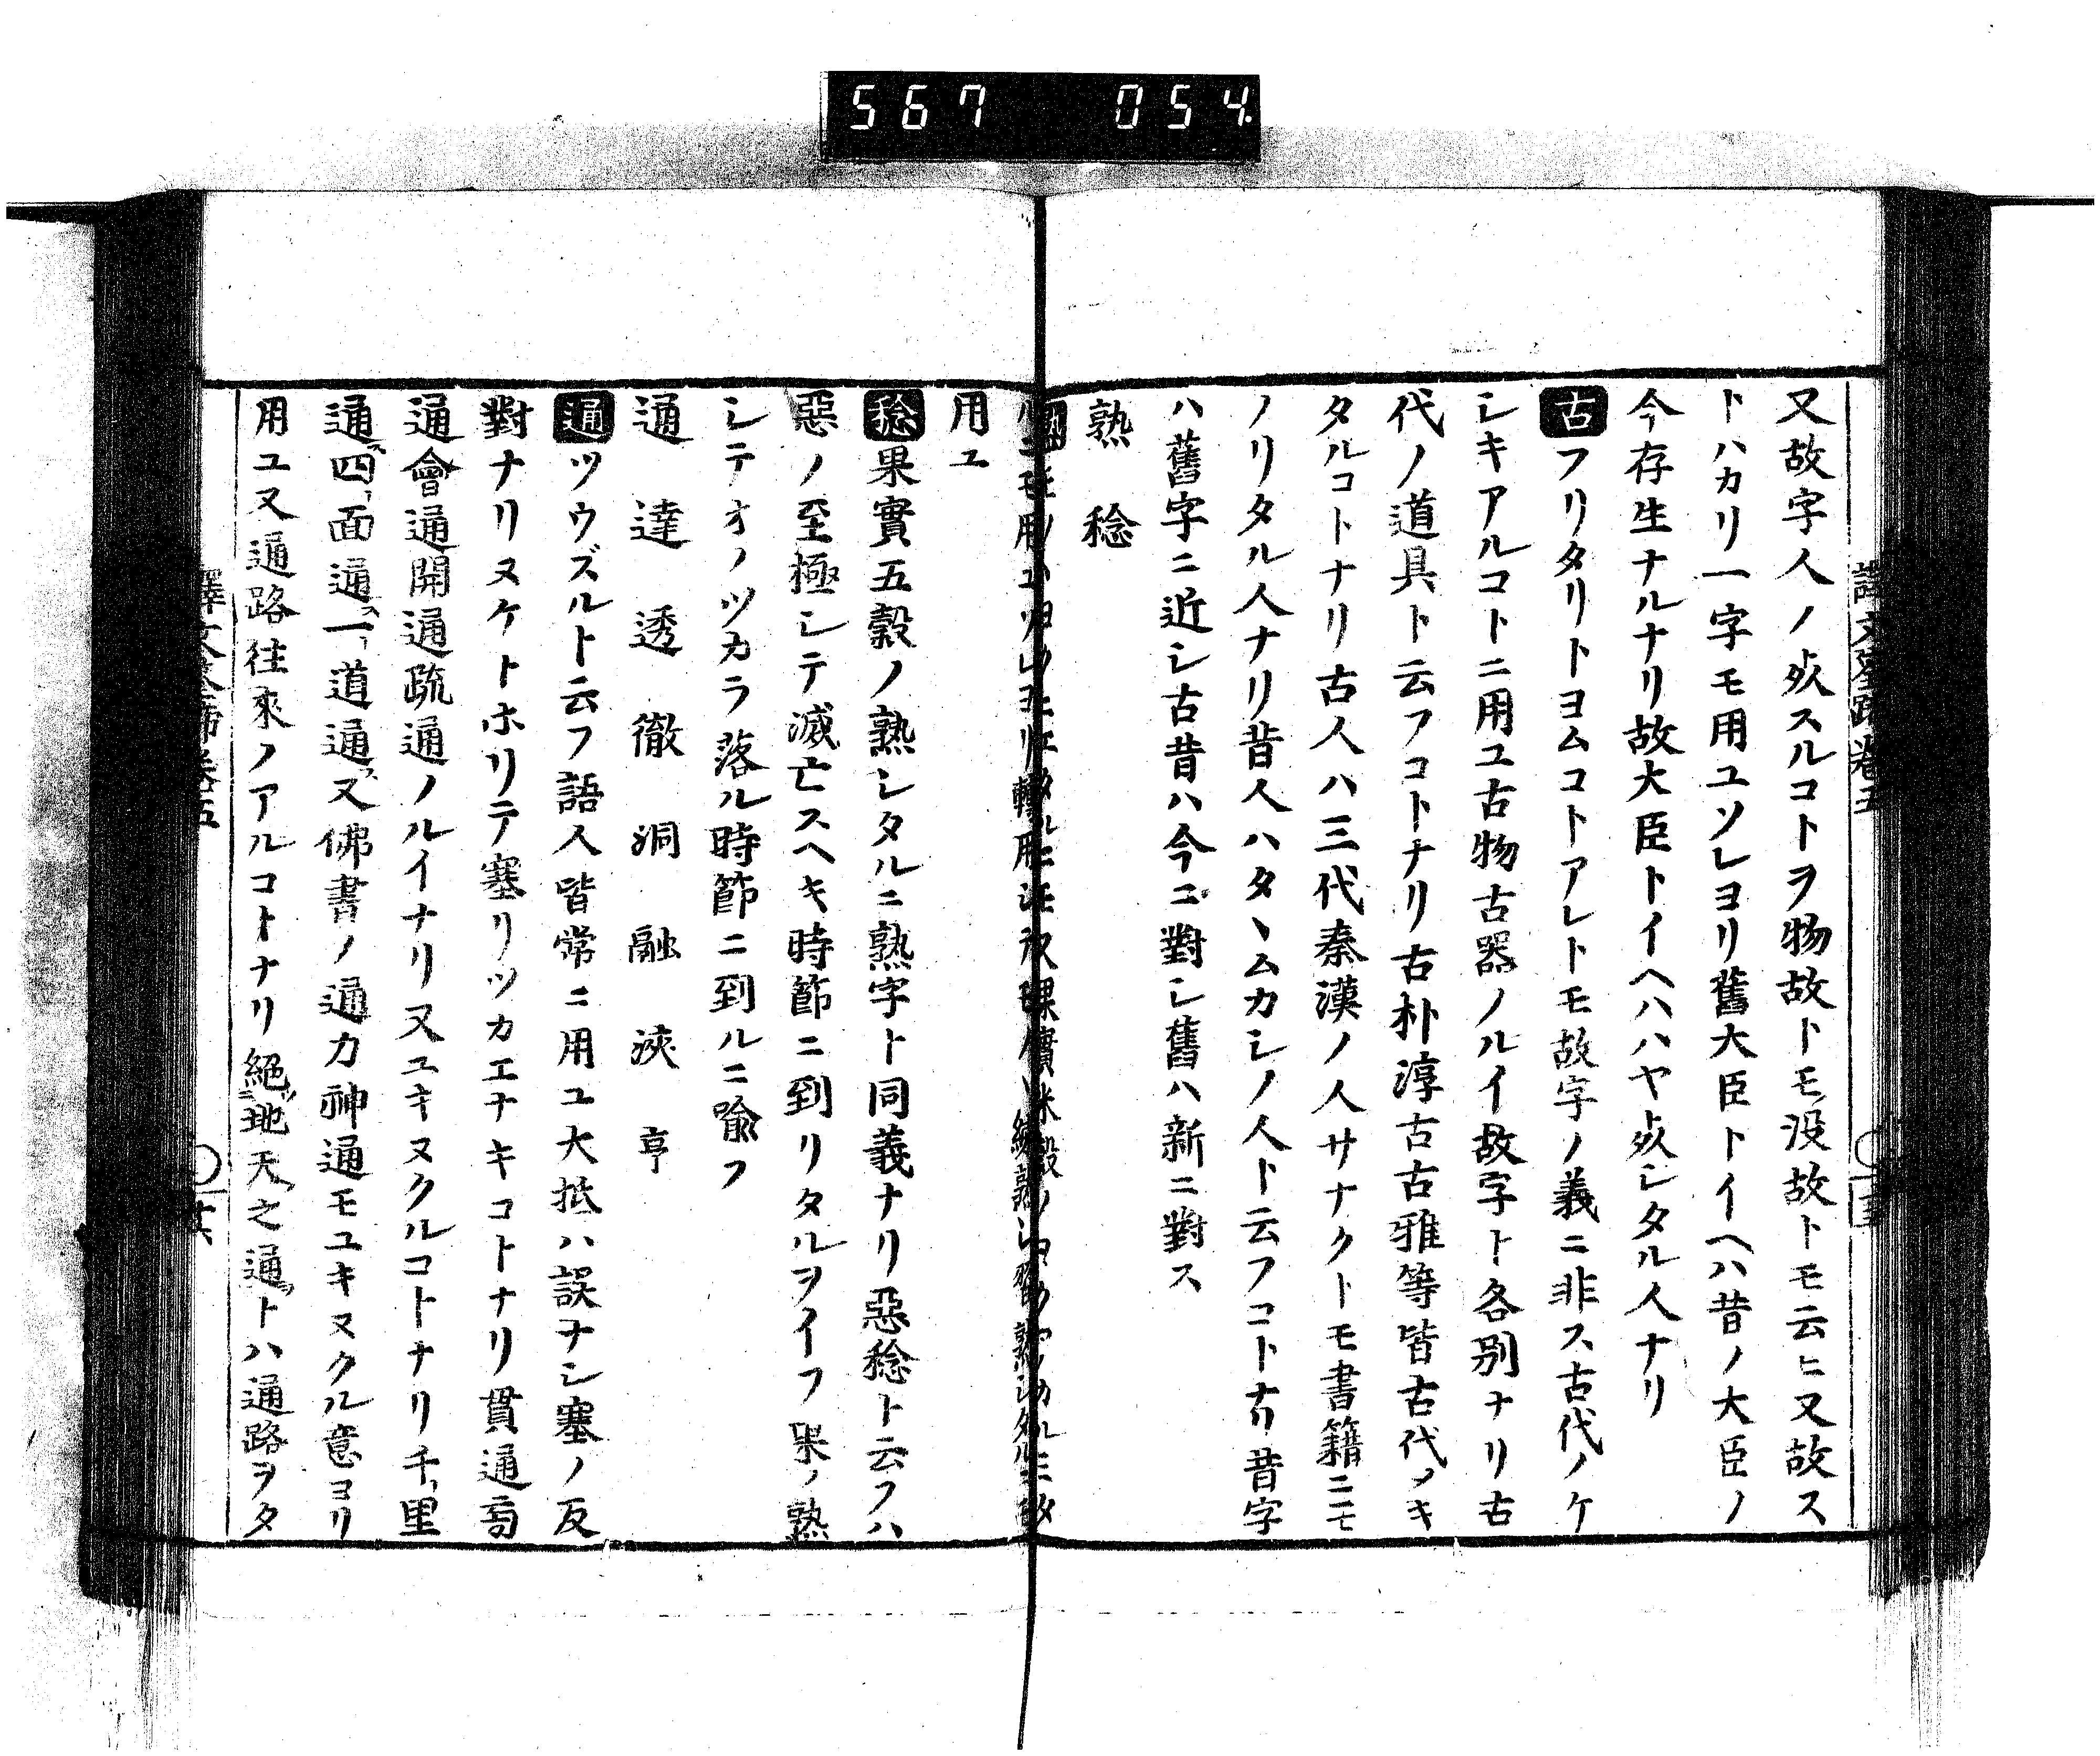 567 054
譯文筌蹄卷五
又故字人ノ死スルコトヲ物故トモ没故トモ云ヒ又故ス
トハカリ一字モ用ユソレヨリ舊大臣トイヘハ昔ノ大臣ノ
今存生ナルナリ故大臣トイヘハハヤ死シタル人ナリ
古フリタリトヨムコトアレトモ故字ノ義ニ非ス古代ノケ
シキアルコトニ用ユ古物古器ノルイ故字ト各別ナリ古
代ノ道具ト云フコトナリ古朴淳古古雅等皆古代メキ
タルコトナリ古人ハ三代秦漢ノ人サナクトモ書籍ニモ
ノリタル人ナリ昔人ハタヽムカシノ人ト云フコトナリ昔字
ハ舊字ニ近シ古昔ハ今ニ對シ舊ハ新ニ對ス
熟 稔
用ユ
稔果實五穀ノ熟シタルニ熟字ト同義ナリ惡稔ト云フハ
惡ノ至極シテ滅亡スヘキ時節ニ到リタルヲイフ果ノ熟
シテオノツカラ落ル時節ニ到ルニ喩フ
通 達 透 徹 洞 融 浹 亨
通ツウズルト云フ語人皆常ニ用ユ大抵ハ誤ナシ塞ノ反
對ナリヌケトホリテ塞リツカエナキコトナリ貫通亨
通會通開通疏通ノルイナリ又ユキヌクルコトナリ千里
通四面通一道通又佛書ノ通力神通モユキヌクル意ヨリ
用ユ又通路往來ノアルコトナリ絕地天之通トハ通路ヲタ
譯文筌蹄卷五